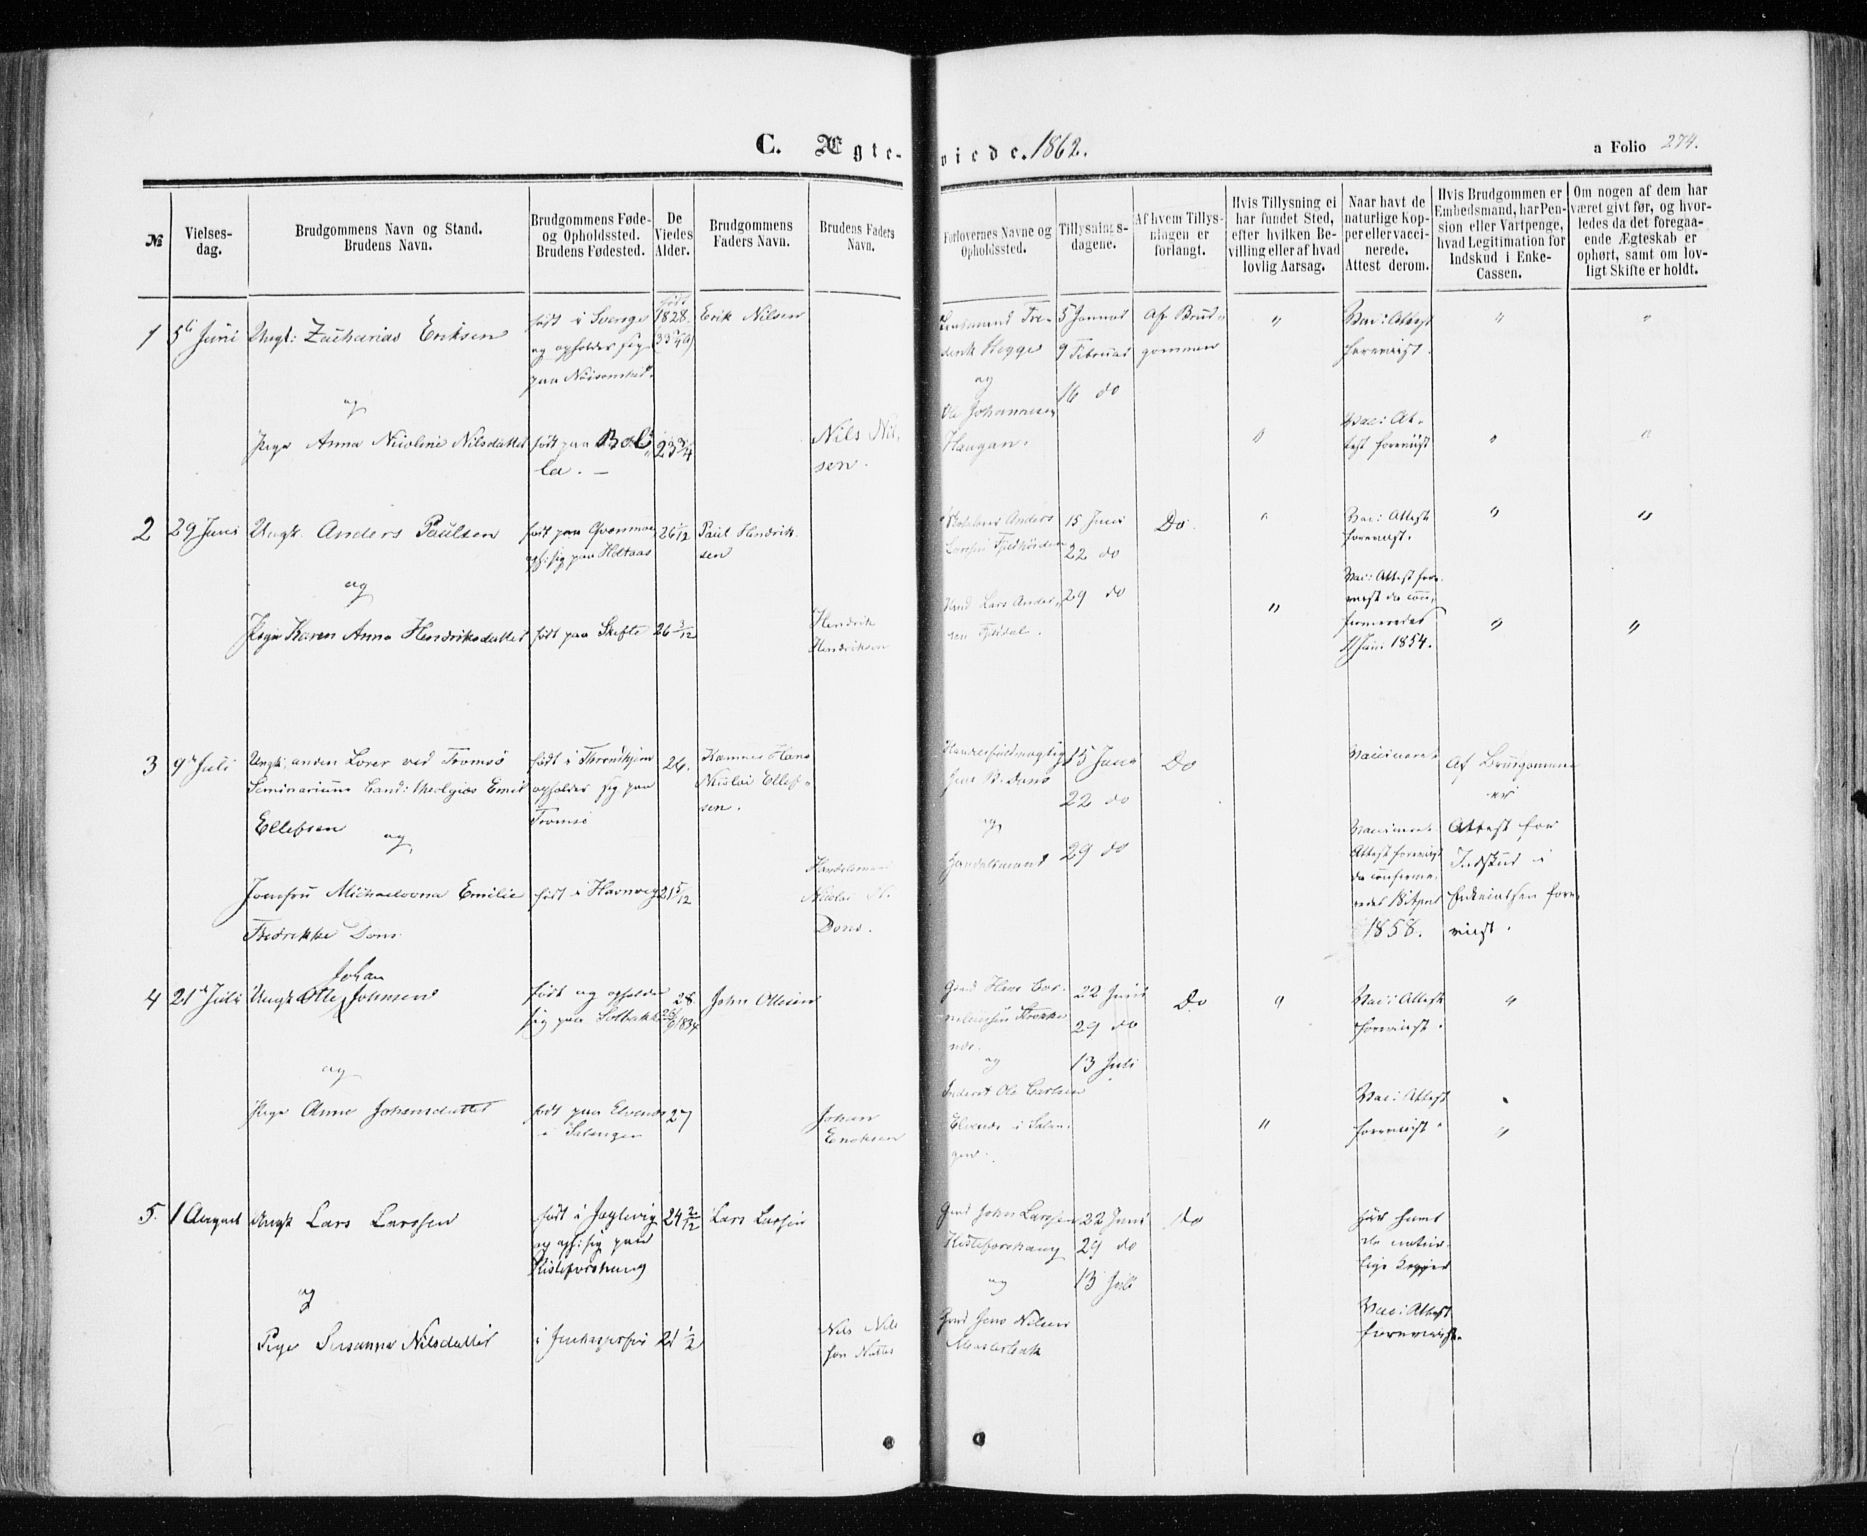 C. Ægte-
viede. 1862.
a Folio 274.
№
Vielses-
dag.
Brudgommens Navn og Stand.
Brudens Navn.
Brudgommens Føde-
og Opholdssted.
Brudens Fødested.
De
Viedes
Alder.
Brudgommens
Faders Navn.
Brudens Faders
Navn.
Forlovernes Navne og
Opholdssted.
Tillysnings-
dagene.
Af hvem Tillys-
ningen er
forlangt.
Hvis Tillysning ei
har fundet Sted,
efter hvilken Be-
villing eller af hvad
lovlig Aarsag.
Naar havt de
naturlige Kop-
per eller vacci-
nerede.
Attest derom.
Hvis Brudgommen er
Embedsmand, har Pen-
sion eller Vartpenge,
hvad Legitimation for
Indskud i Enke-
Cassen.
Om nogen af dem har
været givt før, og hvor-
ledes da det foregaa-
ende Ægteskab er
ophørt, samt om lov-
ligt Skifte er holdt.
1
5te Juni
Ungk: Zacharias Eriksen
og
Pige Anna Nicoline Nilsdatter
født i Sverige
og opholder sig
paa
født paa Bol
la. —
født
1828.
23 3/4
Erik Nilsen
Nils Nil
sen.
Hegge
og
Ole Johannesen
Haugan.
5 Januar
9 Februar
16 do
Af Brud
gommen
"
"
Vac: Attest
foreviist.
Vac: At-
test foreviist
"
"
"
"
2
29 Juni
Ungk. Anders Paulsen
og
Pige Karen Anna Hendriksdatter
født paa
oph: sig paa Holtaas
født paa Skefte
26 1/12
26 3/12
Paul Hendrik
sen
Hendrik
Hendriksen
Anders
Larsen
Lars Ander
sen
15 Juni
22 do
29 do
Do.
"
"
Vac: Attest
foreviist.
Vac: Attest fore-
viist da con-
firmeredes
Juni 1854.
"
"
"
"
3
9de Juli
Ungk: anden Lærer ved Tromsø
Seminarium Cand: theologiæ Emil
Ellefsen
og
Jomfru Michaelovna Emilie
Fredrikke Dons
født i Throndhjem
opholder sig paa
Tromsø
født i Havnvig
24.
21 5/12
Hans
Nicolai Ellef
sen.
Handelsmand
Nicolai
Dons.
Handelsfuldmægtig
Jens Dons
og
Handelsmand
15 Juni
22 do
29 do
Do
Vaccineret
Vaccineret
Attest foreviist
da confirme-
redes 18 April
1858.
Af Brudgommen
er
Attest for
Indskud i
Enkecassen fore
viist.
4
21de Juli
Johan
Ungk Ole Johnsen
og
Pige Anne Johansdatter
født og opholder
sig paa Solbakke
født paa Elvenes
i Salangen
28
1834
27
John Olsen
Johan
Enoksen
Gmd Hans Cor-
neliussen
og
Inderst Ole Carlsen
Elvenes i Salan
gen.
22 Juni
29 do
13 Juli
Do
"
"
Vac: Attest
foreviist.
Vac: Attest
foreviist
"
"
5.
1 August
Ungk Lars Larssen
og
Pige Susanna Nilsdatter
født i Jægtevig
og oph: sig paa
Kisteforshaug
i
24 2/12
21 1/2
Lars Larssen
Nils Nil
sen
Gmd John Larssen
Kisteforshaug
og
Gmd Jens Nilsen
22 Juni
29 do
13 Juli
do
har havt
de natur-
lige Kopper
Vac: Attest
foreviist.